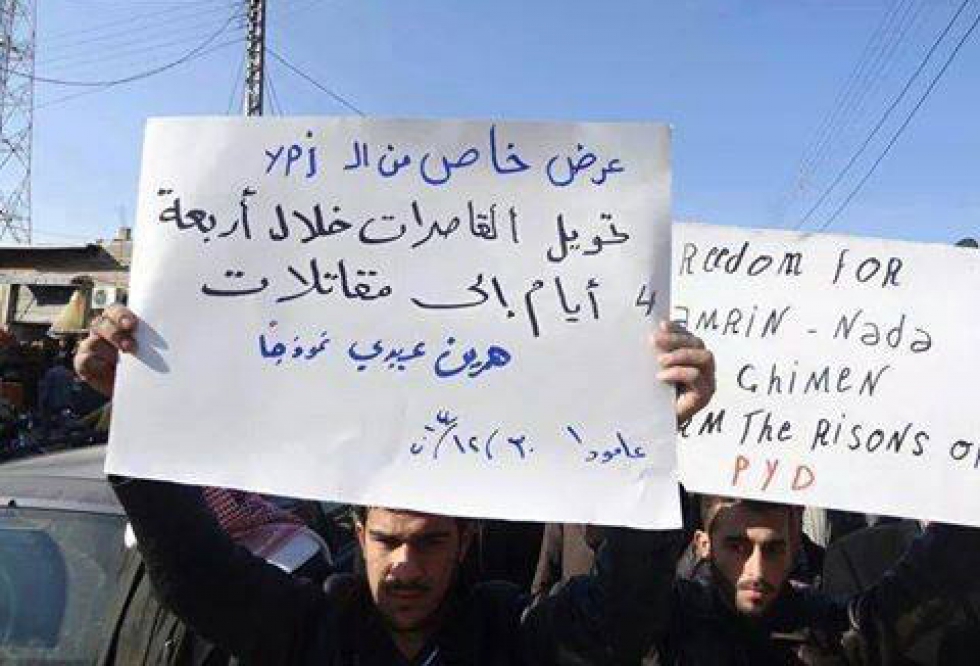 عرض خاص من الـ ypj
تحويل القاصرات خلال أربعة
4 أيام إلى مقاتلات
هرين عبدي نموذجاً
عامودا ٣٠/١٢/
REEDOM FOR
AMRIN - NADA
GHIMEN
THE RISONS OF
PYD